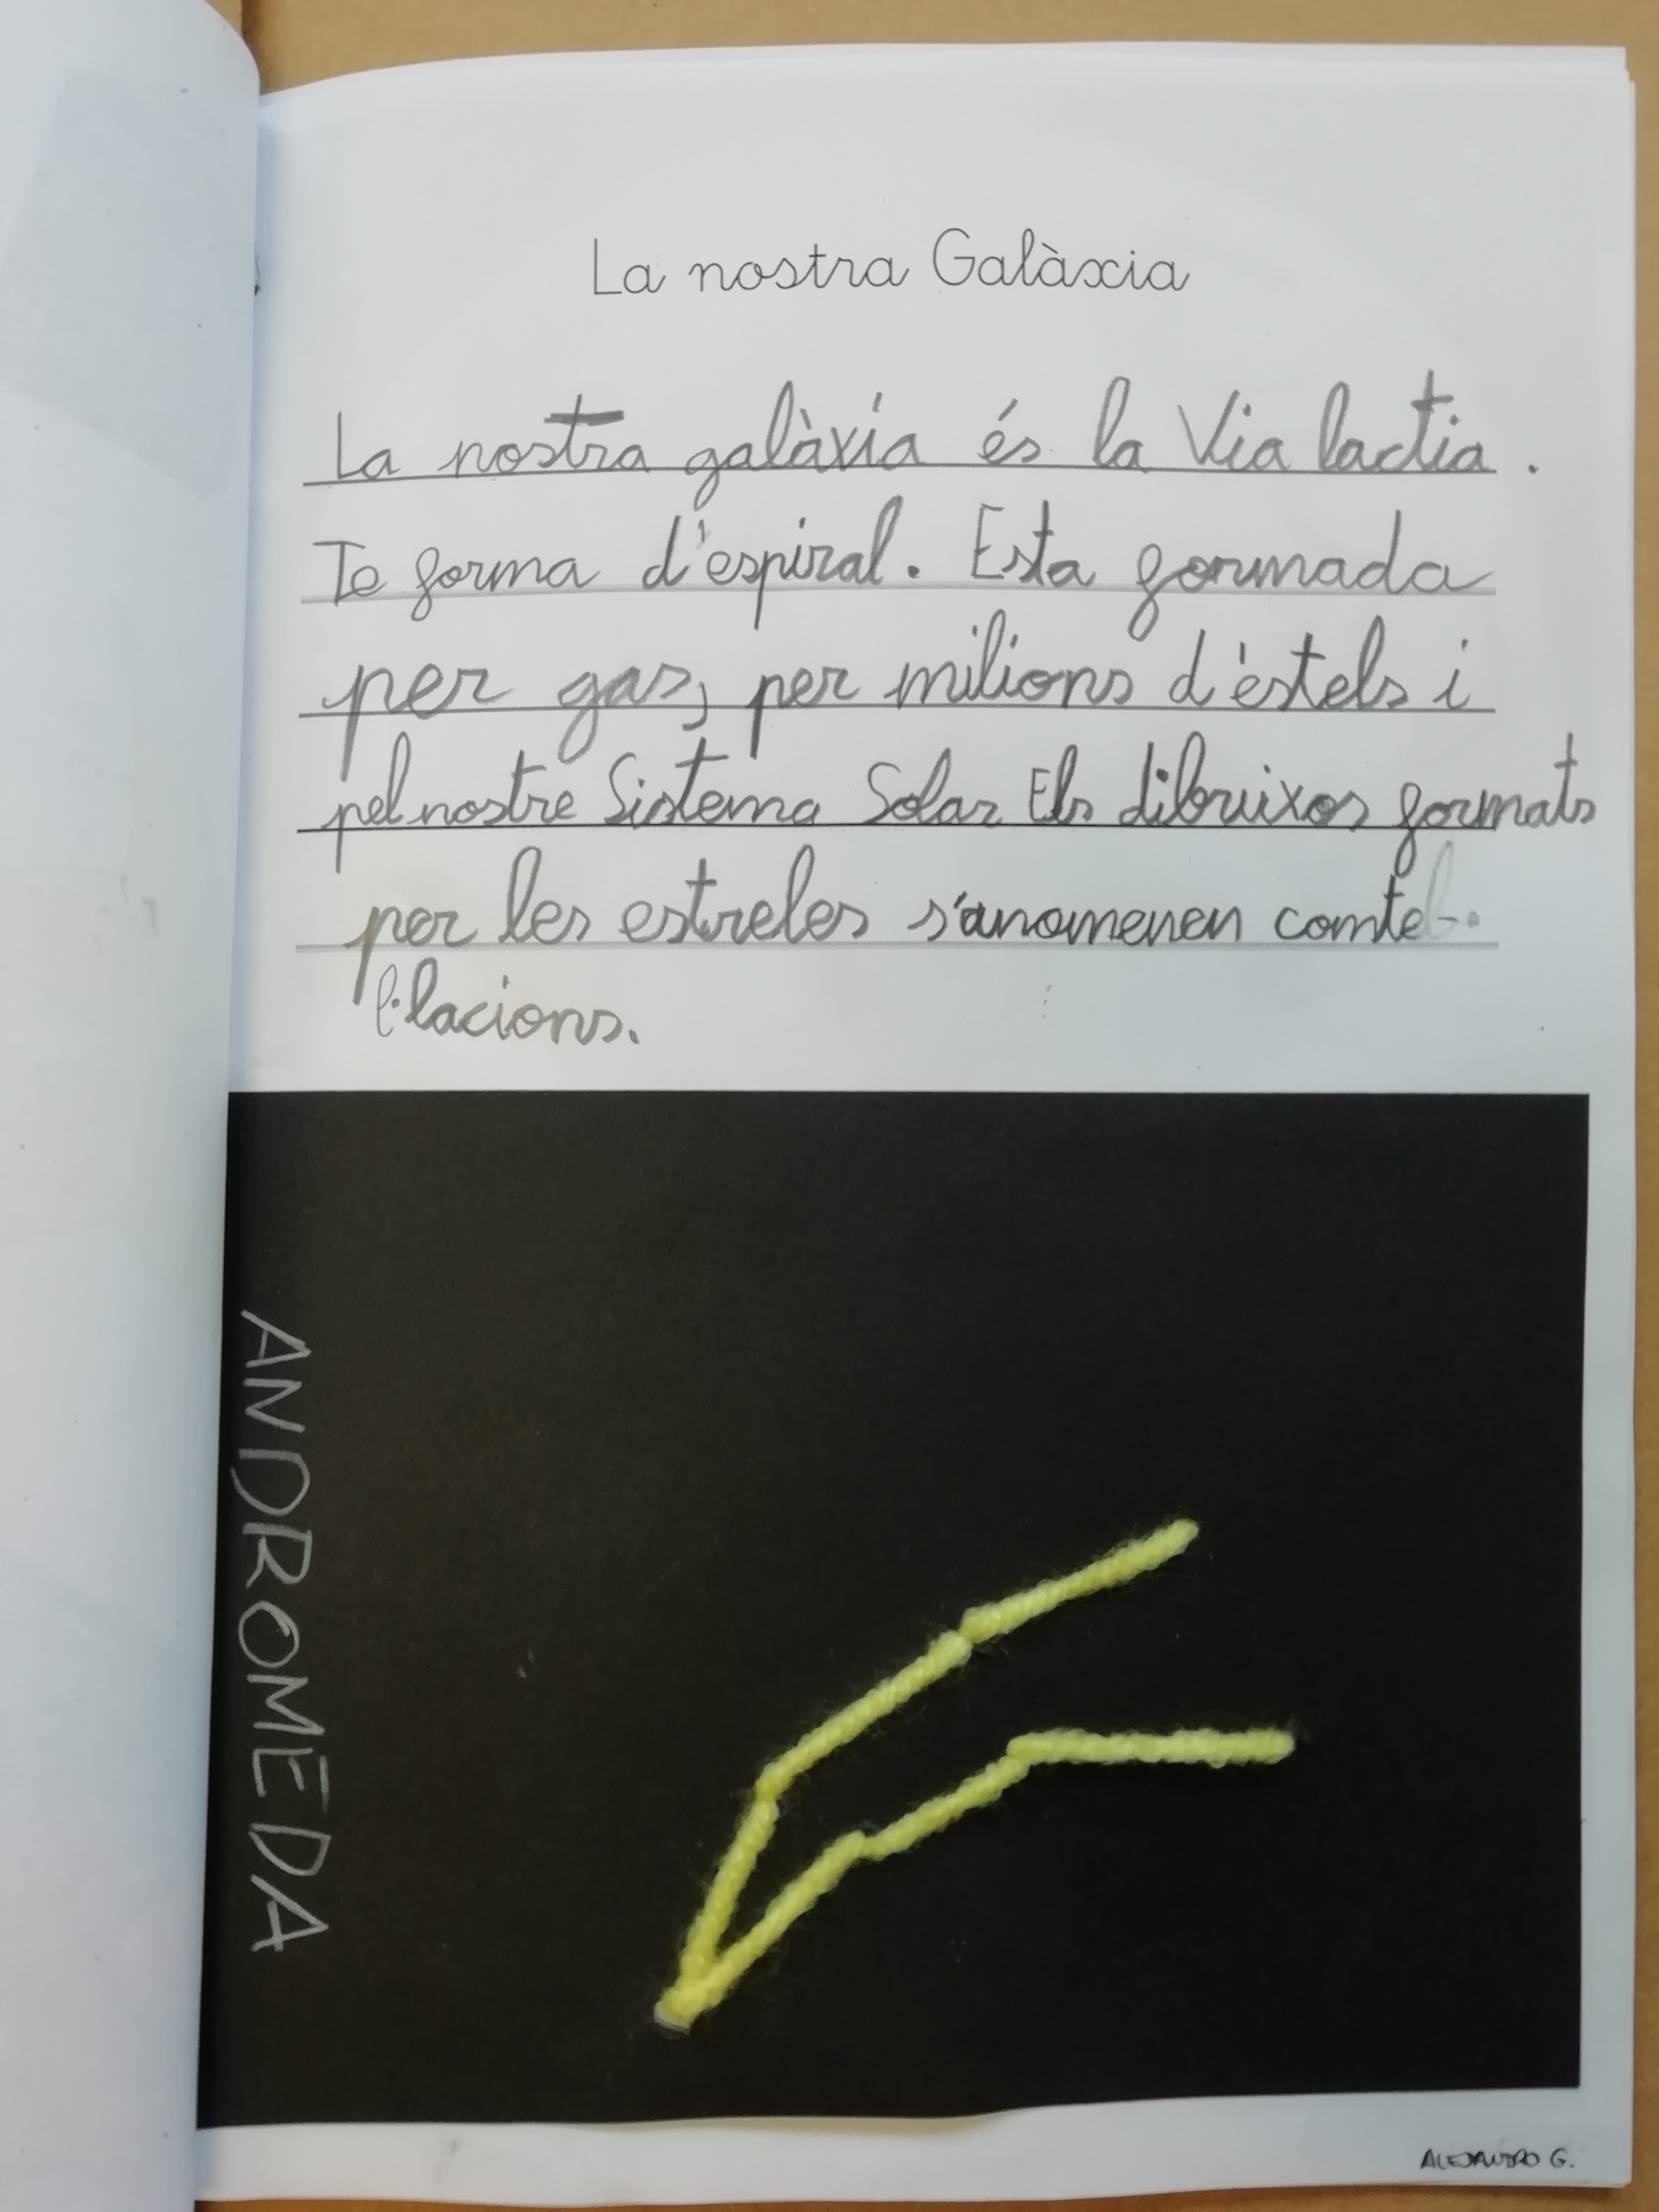 La nostra Galàxia
La nostra galàxia és la Via lactia.
Te forma d'espiral. Esta formada
per gas, per milions d'estels i
pel nostre Sistema Solar Els dibuixos formats
per les estreles s'anomenen comtel-
l·lacions.
ANDROMEDA
ALEJANDRO G.